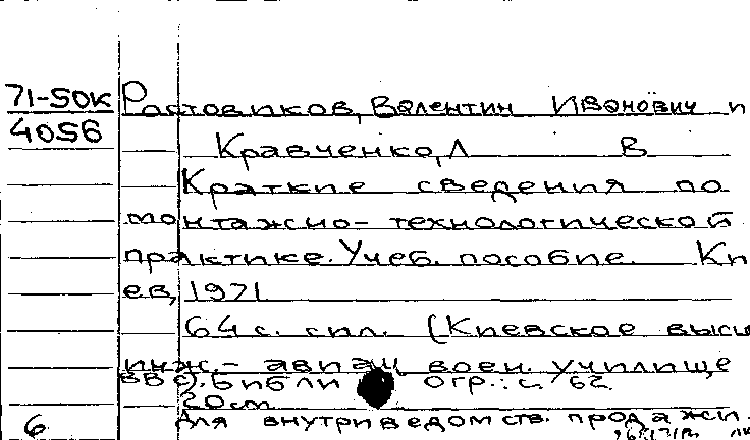 71-50к Ростовиков, Валентин Иванович и
4056
Кравченко, Л В
Краткие сведения по
монтажно-технологической
практике. Учеб. пособие. Ки
ев, 1971
64 с. с ил. (Киевское высш
инж.-авиац воен. училище
ВВС). Библи огр.: с. 62
20см
6 Для внутриведомств. продажи.